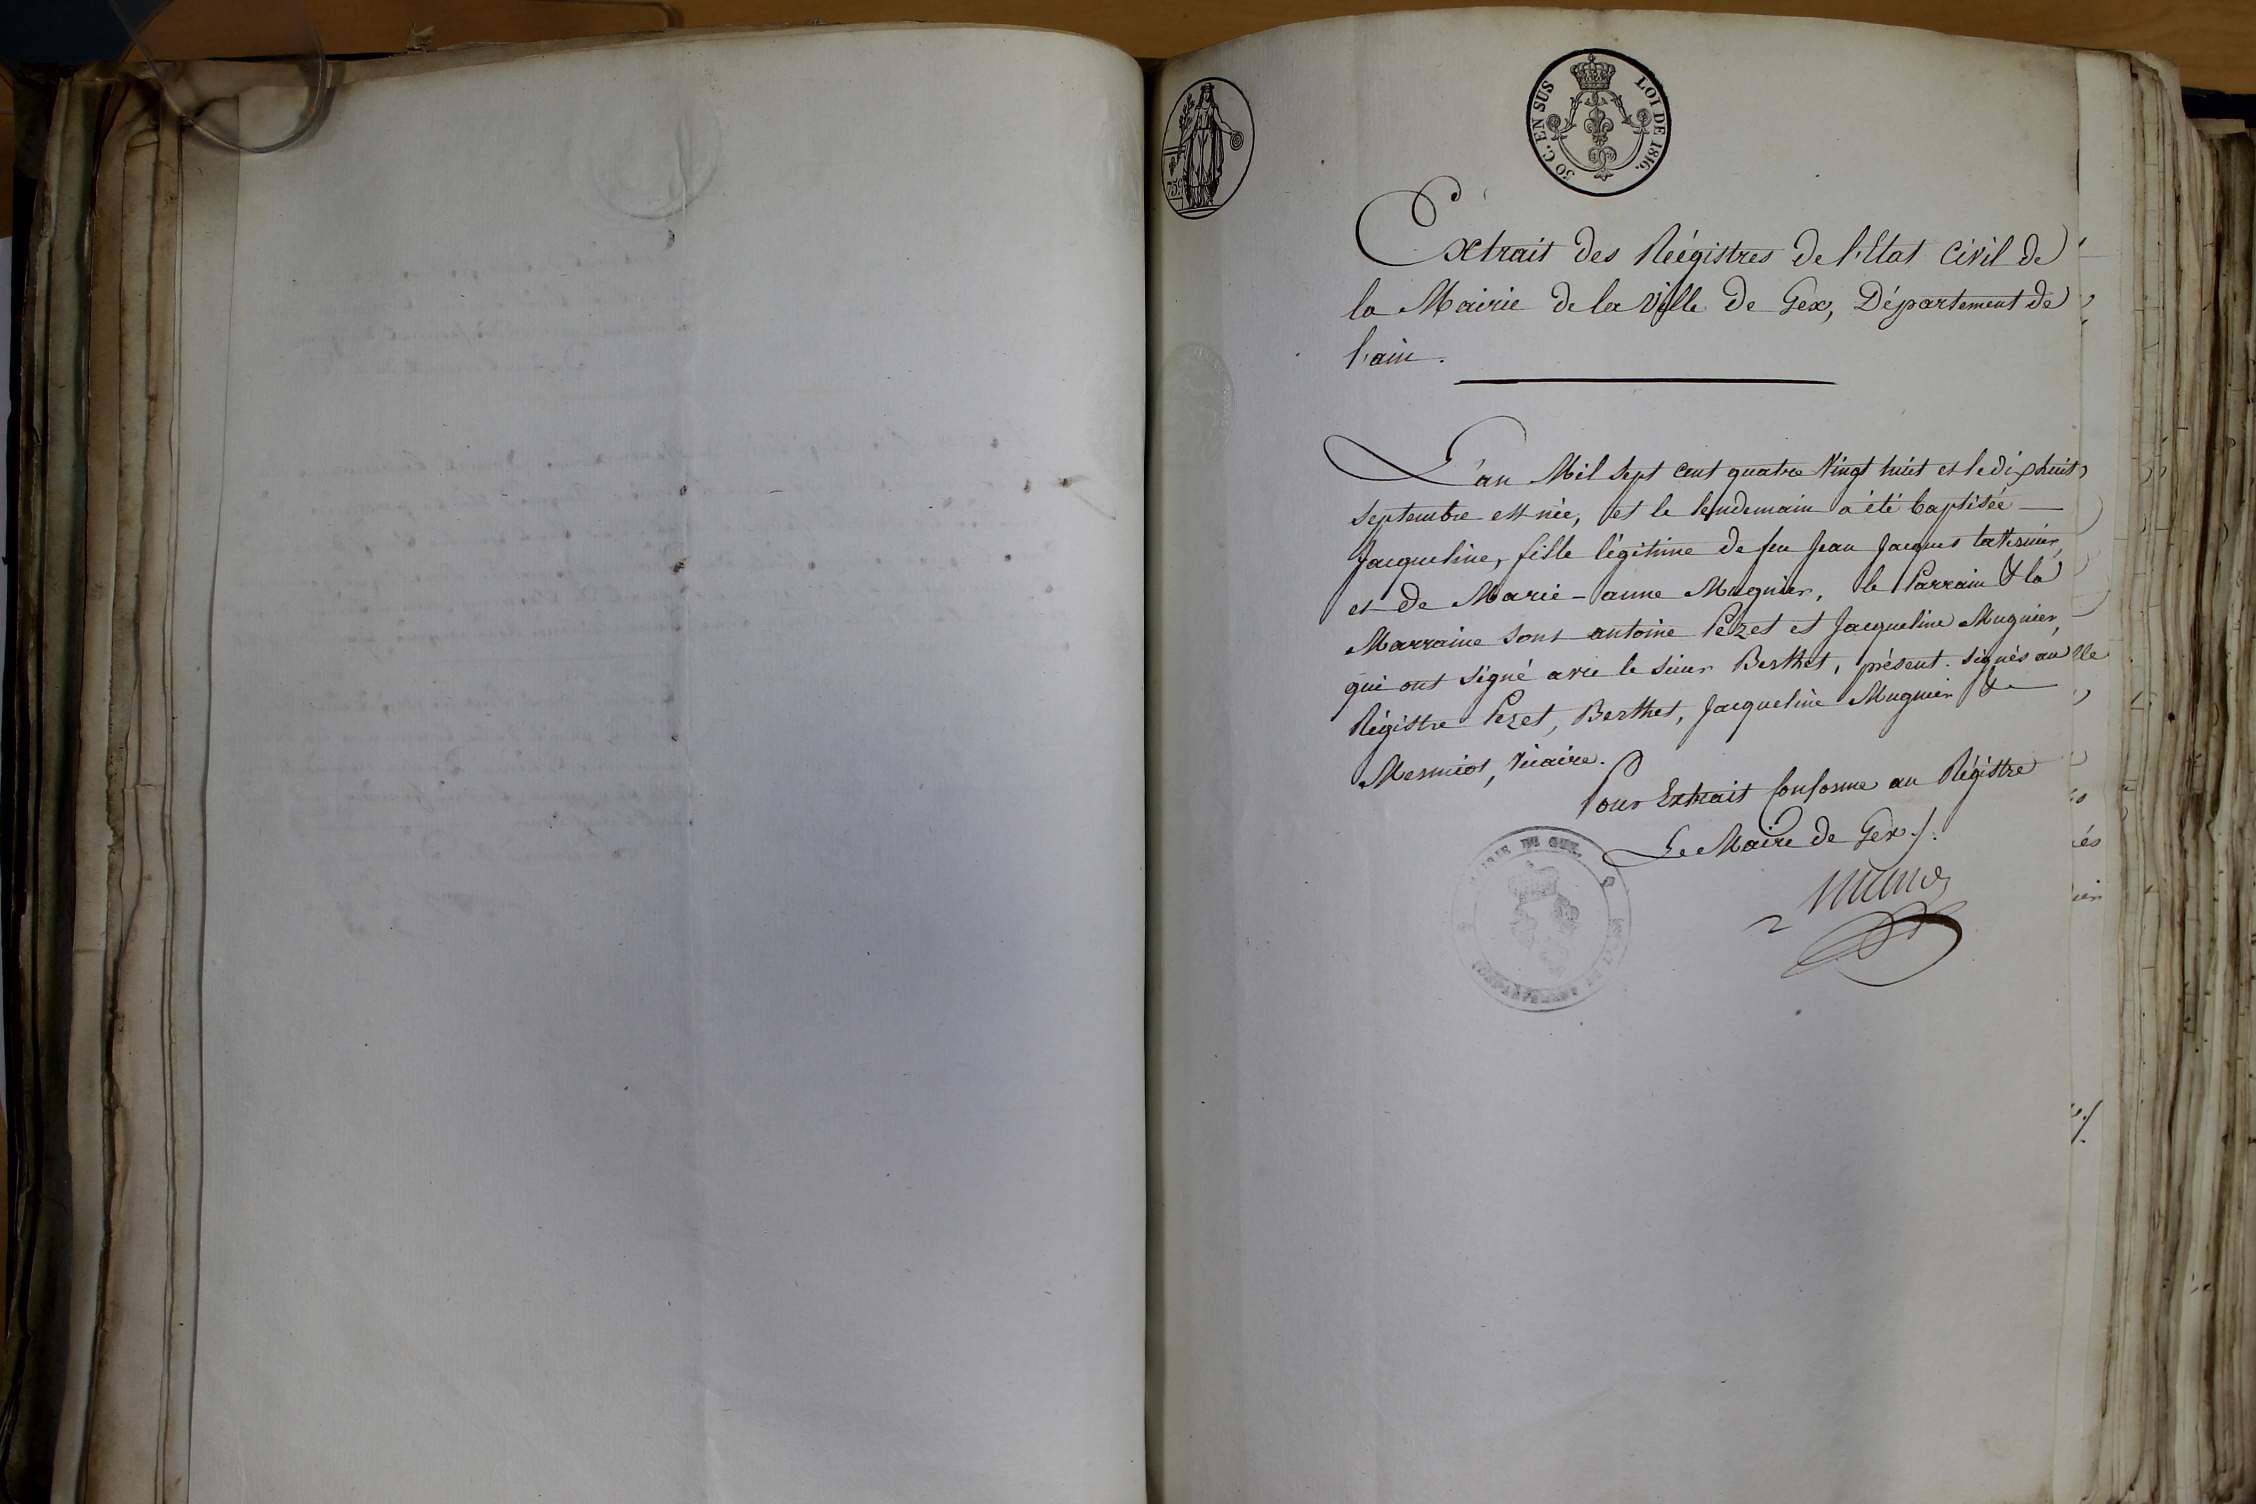 30 C. EN SUS
LOI DE 1816.
75
Extrait des Régistres De l'Etat Civil de
la Mairie de la Ville de Gex, Département de
l'ain.
L'an Mil Sept cent quatre Vingt huit et le dix huit
Septembre est née, et le lendemain a été baptisée
Jacqueline, fille légitime de feu Jean Jacques
et de Marie-anne Mugnier, le Parrain & la
Marraine Sont antoine Pezet et Jacqueline Mugnier,
qui ont Signé avec le Sieur Berthet, présent. Signés au
Régistre Pezet, Berthet, Jacqueline Mugnier &
Mermiot, Vicaire.
Pour Extrait Conforme au Régistre
Le Maire de Gex /.
MAIRIE DE GEX
DEPARTEMENT